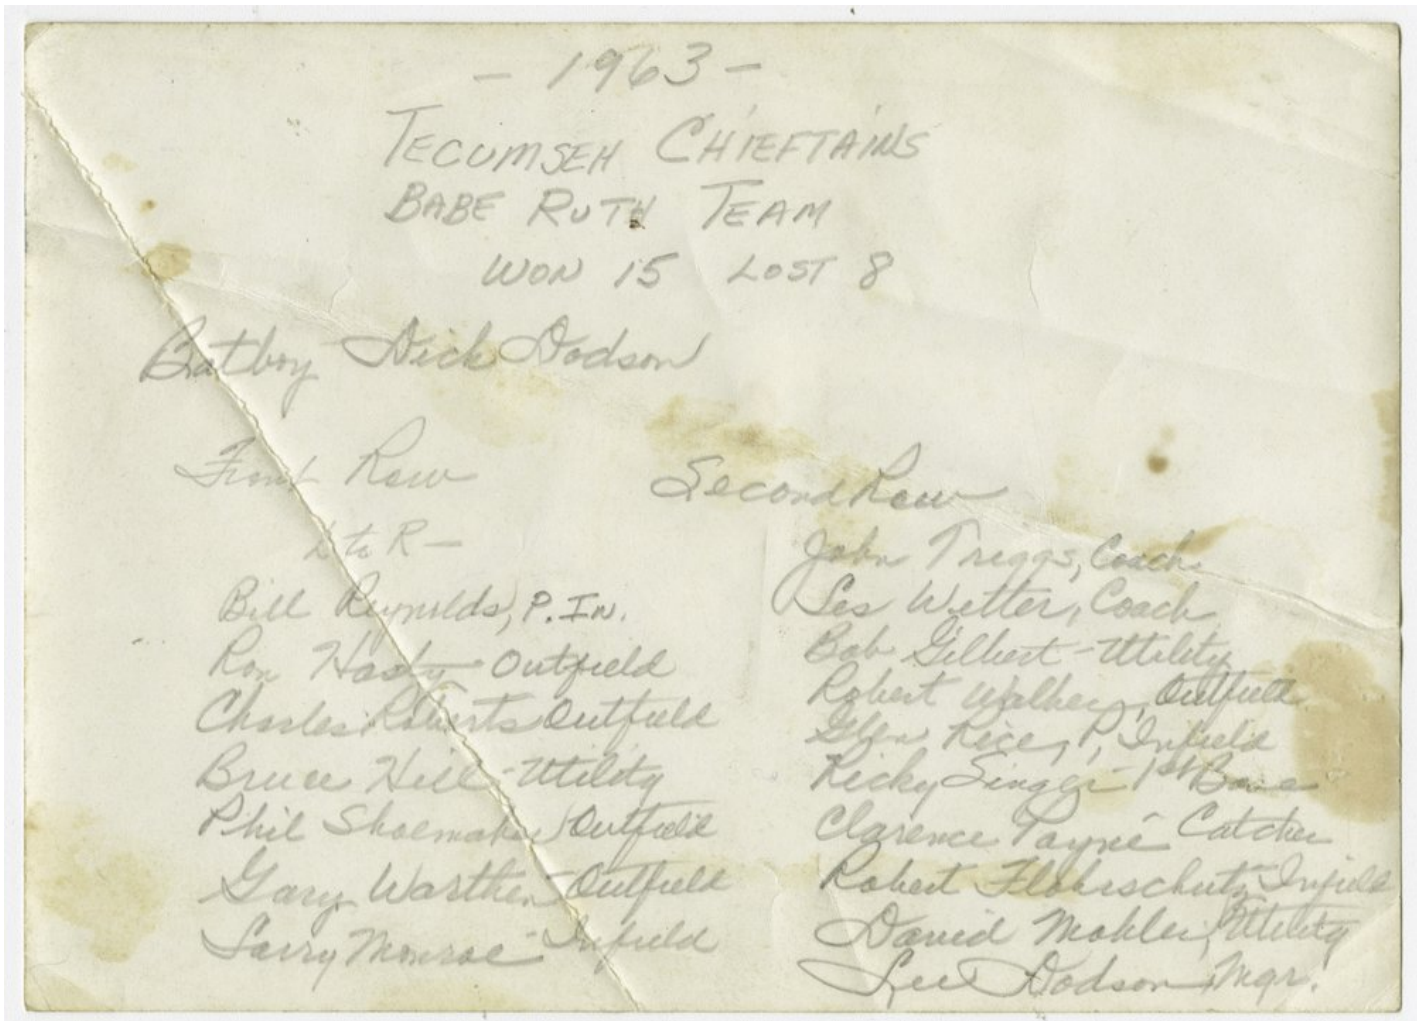 - 1963 -
TECUMSEH CHIEFTAINS
BABE RUTH TEAM
WON 15 LOST 8
Batboy Dick Dodson
Front Row
L to R -
Bill Reynolds, P. IN.
Ron Hasty - Outfield
Charles Roberts Outfield
Bruce Hill - Utility
Phil Shoemaker Outfield
Gary Warthen - Outfield
Larry Monroe - Infield
Second Row
John Triggs, Coach
Les Wetter, Coach
Bob Gilbert - Utility
Robert Walker, Outfield
Glen Rice, P, Infield
Ricky Singer - 1st Base
Clarence Payne - Catcher
Robert Flohrschutz - Infield
David Mohler, Utility
Lee Dodson, Mgr.